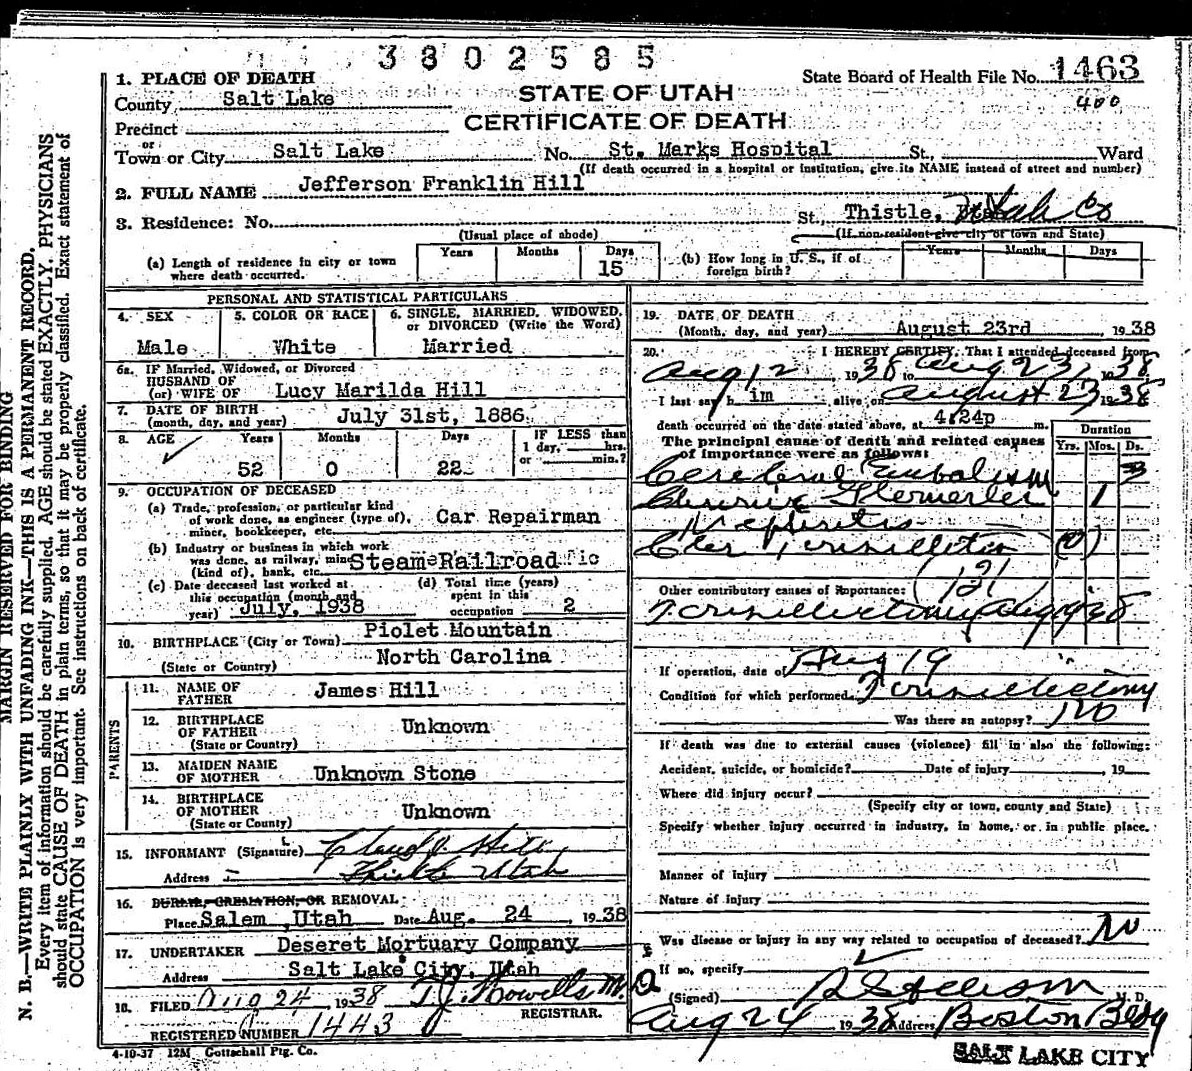 3802585
1. PLACE OF DEATH
State Board of Health File No. 1463
400
County Salt Lake
STATE OF UTAH
CERTIFICATE OF DEATH
Precinct
or
Town or City Salt Lake No. St. Marks Hospital St., Ward
(If death occurred in a hospital or institution, give its NAME instead of street and number)
2. FULL NAME Jefferson Franklin Hill
3. Residence: No. St., Thistle, Utah Co
(Usual place of abode)
(If non-resident give city or town and State)
(a) Length of residence in city or town where death occurred.
Years Months Days
15
(b) How long in U. S., if of foreign birth?
Years Months Days
PERSONAL AND STATISTICAL PARTICULARS
4. SEX
Male
5. COLOR OR RACE
White
6. SINGLE, MARRIED, WIDOWED, or DIVORCED (Write the Word)
Married
6a. IF Married, Widowed, or Divorced
HUSBAND OF
(or) WIFE OF Lucy Marilda Hill
7. DATE OF BIRTH
(month, day, and year) July 31st, 1886
8. AGE Years Months Days IF LESS than
1 day, hrs.
or min.?
52 0 22
9. OCCUPATION OF DECEASED
(a) Trade, profession, or particular kind
of work done, as engineer (type of), Car Repairman
miner, bookkeeper, etc.
(b) Industry or business in which work
was done, as railway, mine Steam Railroad
(kind of), bank, etc.
(c) Date deceased last worked at
this occupation (month and
year) July, 1938
(d) Total time (years)
spent in this
occupation 2
10. BIRTHPLACE (City or Town) Piolet Mountain
(State or Country) North Carolina
PARENTS
11. NAME OF
FATHER James Hill
12. BIRTHPLACE
OF FATHER Unknown
(State or Country)
13. MAIDEN NAME
OF MOTHER Unknown Stone
14. BIRTHPLACE
OF MOTHER Unknown
(State or Country)
15. INFORMANT (Signature) Hill
Address Thistle Utah
16. BURIAL, CREMATION, OR REMOVAL
Place Salem, Utah Date Aug. 24, 1938
17. UNDERTAKER Deseret Mortuary Company
Address Salt Lake City, Utah
18. FILED Aug 24 1938 T.J. Howells M.D.
REGISTRAR.
REGISTERED NUMBER 1443
4-10-37 12M Gottschall Ptg. Co.
19. DATE OF DEATH
(Month, day, and year) August 23rd, 1938
20. I HEREBY CERTIFY, That I attended deceased from
Aug 12 1938 to Aug 23, 1938
I last saw him alive on August 23 1938
death occurred on the date stated above, at 4:24p m.
The principal cause of death and related causes
of importance were as follows:
Duration
Yrs. Mos. Ds.
Cerebral Embolism 3
1
Nephritis
131
Other contributory causes of importance:
Tonsillectomy Aug 19 38
If operation, date of Aug 19
Condition for which performed Tonsillectomy
Was there an autopsy? No
If death was due to external causes (violence) fill in also the following:
Accident, suicide, or homicide? Date of injury , 19
Where did injury occur?
(Specify city or town, county and State)
Specify whether injury occurred in industry, in home, or in public place.
Manner of injury
Nature of injury
Was disease or injury in any way related to occupation of deceased? No
If so, specify
(Signed) M. D.
Aug 24 1938 Address Boston Bldg
SALT LAKE CITY
MARGIN RESERVED FOR BINDING
N. B.—WRITE PLAINLY WITH UNFADING INK—THIS IS A PERMANENT RECORD.
Every item of information should be carefully supplied. AGE should be stated EXACTLY. PHYSICIANS
should state CAUSE OF DEATH in plain terms, so that it may be properly classified. Exact statement of
OCCUPATION is very important. See instructions on back of certificate.